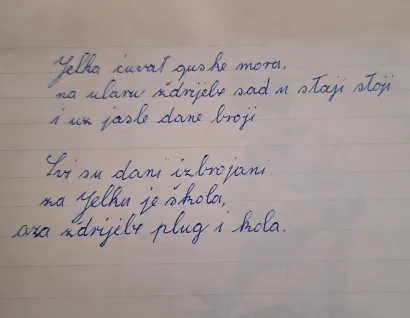 Jelka čuvat guske mora,
na ularu ždrijebe sad u staji stoji
i uz jasle dane broji
Svi su dani izbrojani
za Jelku je škola,
a za ždrijebe plug i kola.